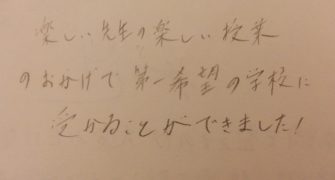 楽しい先生の楽しい授業
のおかげで第一希望の学校に
受かることができました!